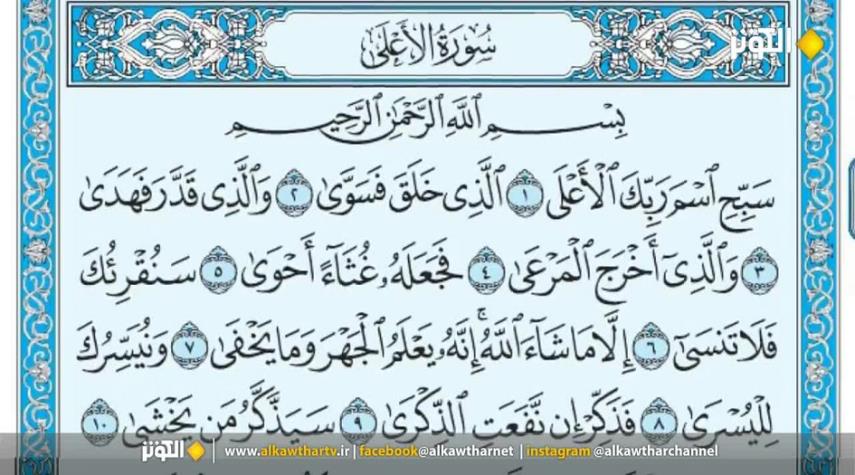 سُورَةُ الأَعْلَىٰ
الكوثر
بِسْمِ ٱللَّهِ ٱلرَّحْمَٰنِ ٱلرَّحِيمِ
سَبِّحِ ٱسْمَ رَبِّكَ ٱلْأَعْلَى ١ ٱلَّذِى خَلَقَ فَسَوَّىٰ ٢ وَٱلَّذِى قَدَّرَ فَهَدَىٰ
٣ وَٱلَّذِىٓ أَخْرَجَ ٱلْمَرْعَىٰ ٤ فَجَعَلَهُۥ غُثَآءً أَحْوَىٰ ٥ سَنُقْرِئُكَ
فَلَا تَنسَىٰٓ ٦ إِلَّا مَا شَآءَ ٱللَّهُ ۚ إِنَّهُۥ يَعْلَمُ ٱلْجَهْرَ وَمَا يَخْفَىٰ ٧ وَنُيَسِّرُكَ
لِلْيُسْرَىٰ ٨ فَذَكِّرْ إِن نَّفَعَتِ ٱلذِّكْرَىٰ ٩ سَيَذَّكَّرُ مَن يَخْشَىٰ ١٠
الكوثر www.alkawthartv.ir | facebook@alkawtharnet | instagram @alkawtharchannel